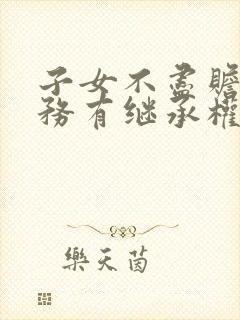 子女不尽赡
务有继承權
樂天茵